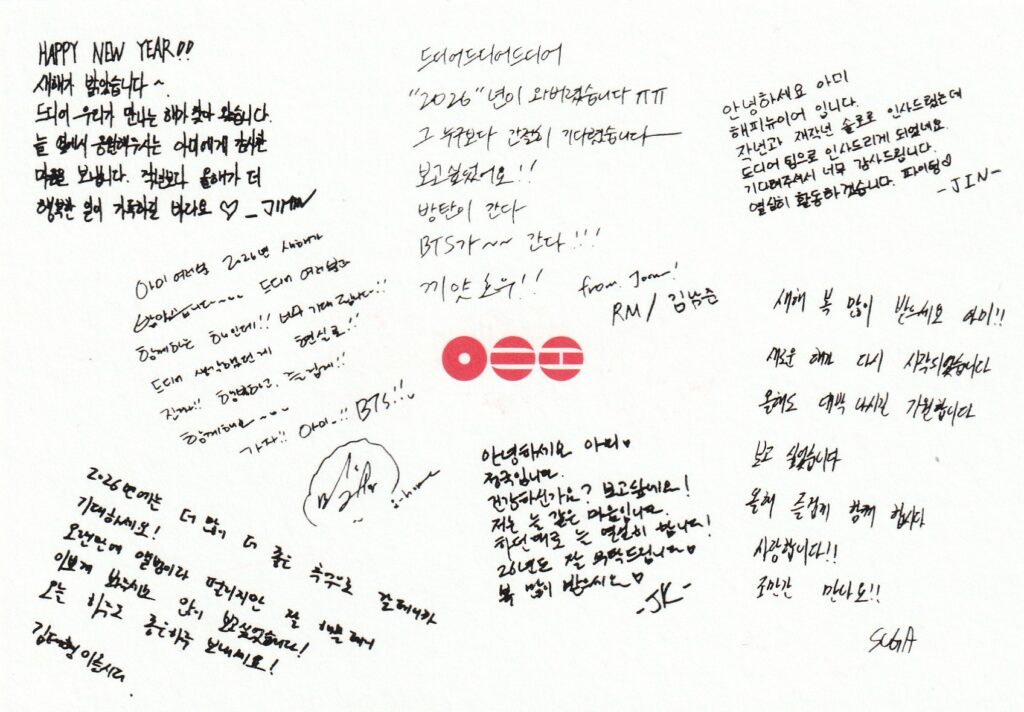 HAPPY NEW YEAR!!
새해가 밝았습니다~.
드디어 우리가 만나는 해가 찾아 왔습니다.
늘 옆에서 응원해주시는 아미에게 감사한
마음을 보냅니다. 작년보다 올해가 더
행복한 일이 가득하길 바라요 ♡ _JIMIN
드디어드디어드디어
"2026"년이 와버렸습니다 ㅠㅠ
그 누구보다 간절히 기다렸습니다
보고싶었어요!!
방탄이 간다
BTS가~~ 간다!!!
끼얏호우!!
from. Joon!
RM / 김남준
안녕하세요 아미
해피뉴이어 입니다.
작년과 재작년 솔로로 인사드렸는데
드디어 팀으로 인사드리게 되었네요.
기다려주셔서 너무 감사드립니다.
열심히 활동하겠습니다. 파이팅♡
-JIN-
아미 여러분 2026년 새해가
밝았습니다~~ 드디어 여러분과
함께하는 해인데!! 너무 기대됩니다!!
드디어 생각했던게 현실로!!
진짜!! 행복하고, 즐겁게!!
함께해요~
가자!! 아미..!! BTS!!
j-hope
새해 복 많이 받으세요 아미!!
새로운 해가 다시 시작되었습니다
올해도 대박 나시길 기원합니다
보고 싶었습니다
올해 즐겁게 함께 합시다
사랑합니다!!
조만간 만나요!!
SUGA
2026년에는 더 많이 더 좋은 추억으로 갈테니까
기대하세요!
오랜만에 앨범이라 떨리지만 잘 해볼테니
이쁘게 봐주시요 많이 보고싶었습니다!
오늘 하루도 좋은하루 보내세요!
김태형 이올시다.
안녕하세요 아미♡
정국입니다.
건강하신가요? 보고싶네요!
저는 늘 같은 마음입니다.
하던대로 늘 열심히 합니다!
26년도 잘 부탁드립니다♡
복 많이 받으시오♡
-JK-